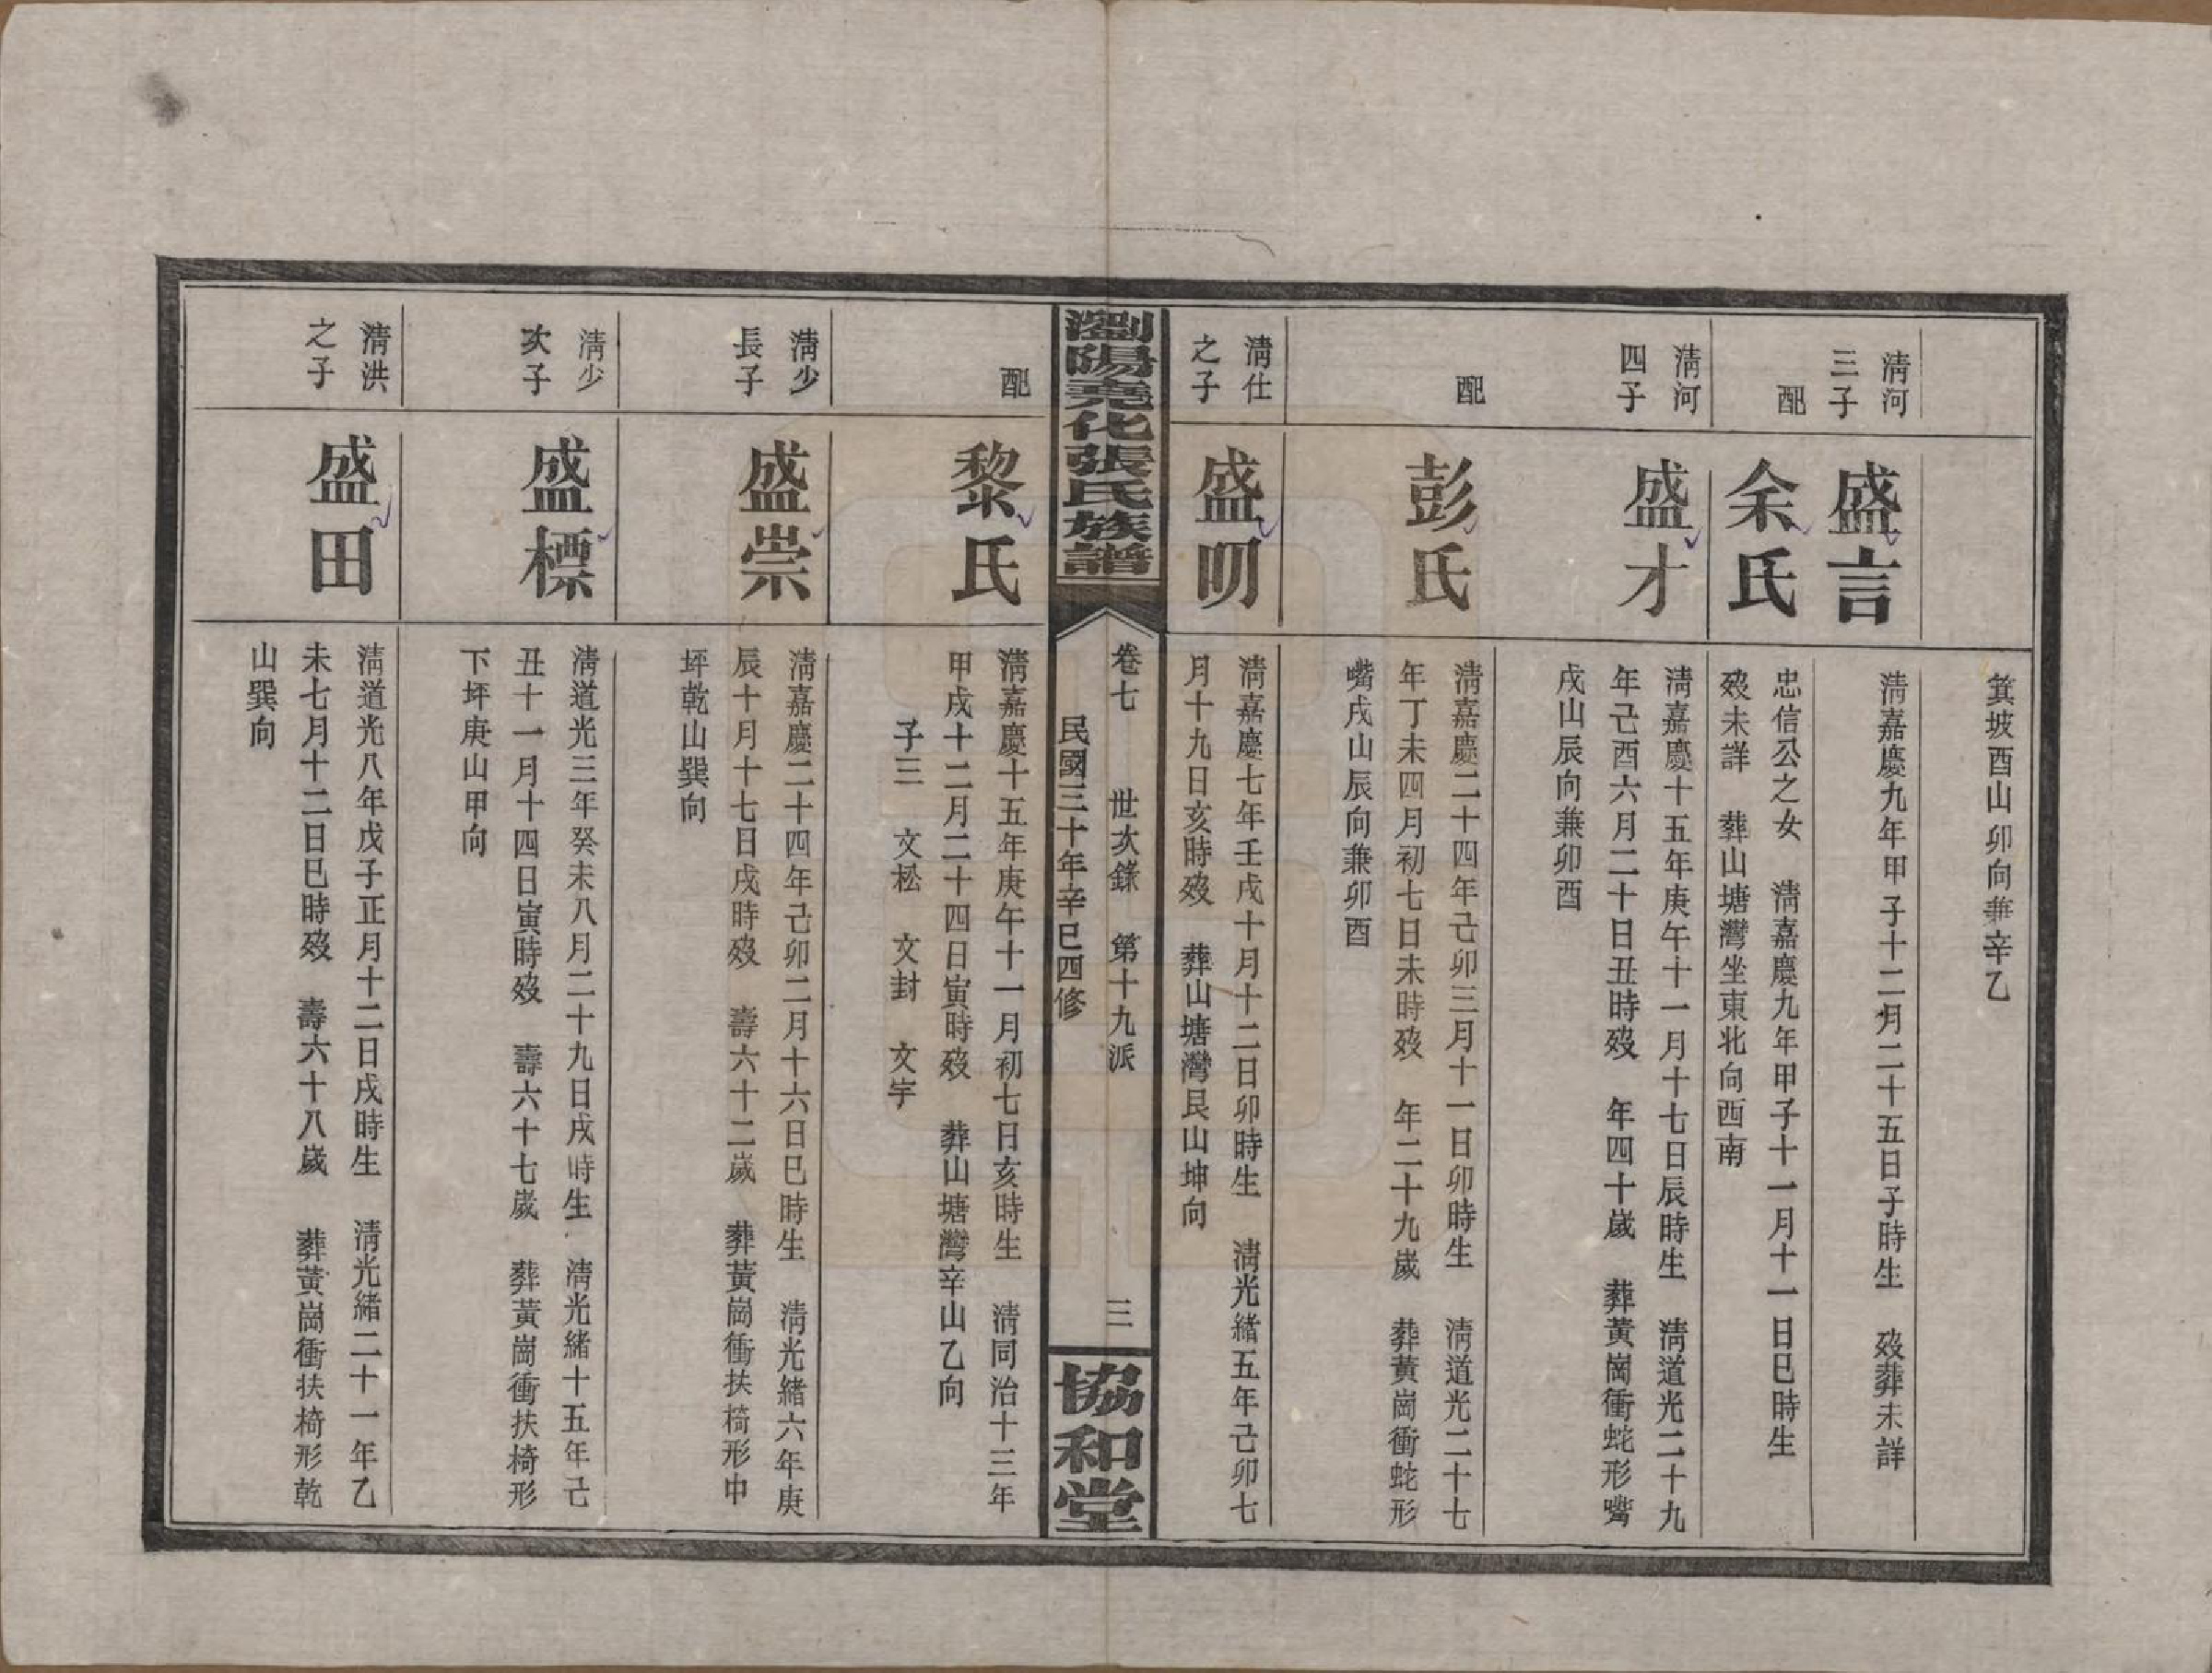 箕坡酉山卯向兼辛乙
清河
三子
盛言
清嘉慶九年甲子十二月二十五日子時生　歿葬未詳
配
余氏
忠信公之女　清嘉慶九年甲子十一月十一日巳時生
歿未詳　葬山塘灣坐東北向西南
清河
四子
盛才
清嘉慶十五年庚午十一月十七日辰時生　清道光二十九
年己酉六月二十日丑時歿　年四十歲　葬黃崗衝蛇形嘴
戌山辰向兼卯酉
配
彭氏
清嘉慶二十四年己卯三月十一日卯時生　清道光二十七
年丁未四月初七日未時歿　年二十九歲　葬黃崗衝蛇形
嘴戌山辰向兼卯酉
清仕
之子
盛明
清嘉慶七年壬戌十月十二日卯時生　清光緒五年己卯七
月十九日亥時歿　葬山塘灣艮山坤向
瀏陽堯化張氏族譜
卷七　世次錄　第十九派　三
民國三十年辛巳四修
協和堂
配
黎氏
清嘉慶十五年庚午十一月初七日亥時生　清同治十三年
甲戌十二月二十四日寅時歿　葬山塘灣辛山乙向
子三　文松　文封　文宇
清少
長子
盛崇
清嘉慶二十四年己卯二月十六日巳時生　清光緒六年庚
辰十月十七日戌時歿　壽六十二歲　葬黃崗衝扶椅形中
坪乾山巽向
清少
次子
盛標
清道光三年癸未八月二十九日戌時生　清光緒十五年己
丑十一月十四日寅時歿　壽六十七歲　葬黃崗衝扶椅形
下坪庚山甲向
清洪
之子
盛田
清道光八年戊子正月十二日戌時生　清光緒二十一年乙
未七月十二日巳時歿　壽六十八歲　葬黃崗衝扶椅形乾
山巽向